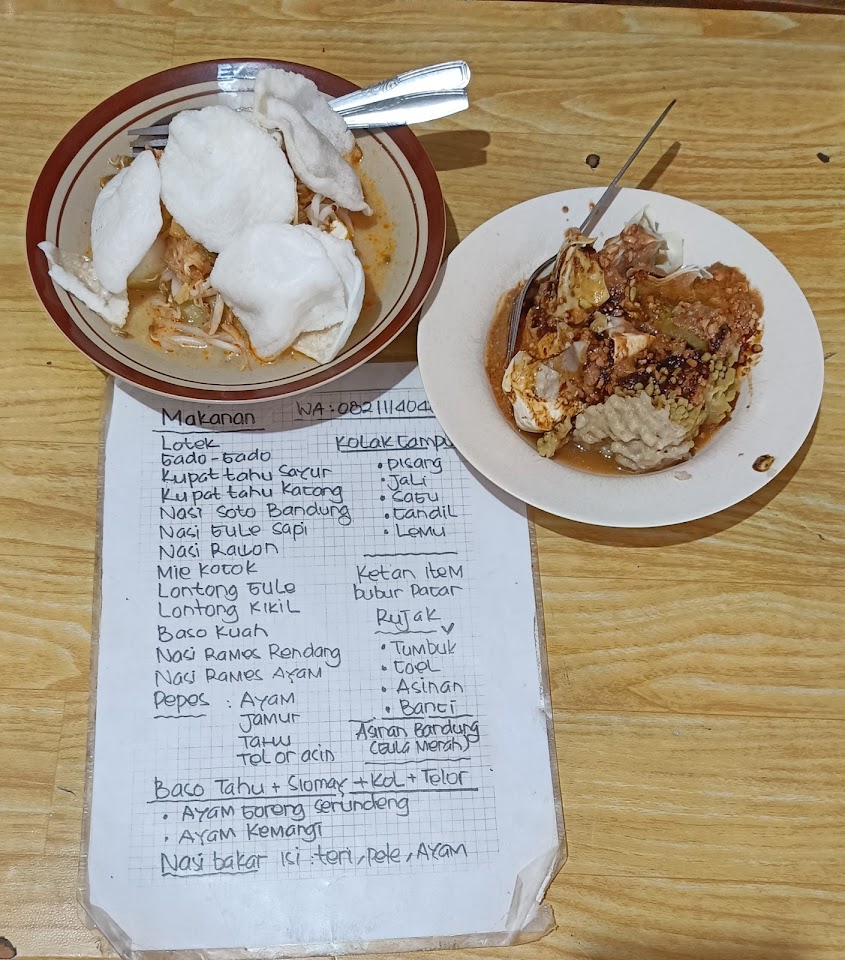 Makanan
WA: 08211140
Lotek
Gado-Gado
Kupat tahu Sayur
Kupat tahu Katong
Nasi Soto Bandung
Nasi Gule Sapi
Nasi Rawon
Mie Kocok
Lontong Gule
Lontong Kikil
Baso Kuah
Nasi Rames Rendang
Nasi Rames Ayam
Pepes : Ayam
Jamur
Tahu
Telor acin
Kolak Campu
• Pisang
• Jali
• Sagu
• Candil
• Lemu
Ketan item
bubur Pacar
Rujak
• Tumbuk
• Coel
• Asinan
• Banci
Asinan Bandung
(Gula Merah)
Baso Tahu + Siomay + Kol + Telor
• Ayam Goreng Serundeng
• Ayam Kemangi
Nasi bakar isi : teri, pete, Ayam